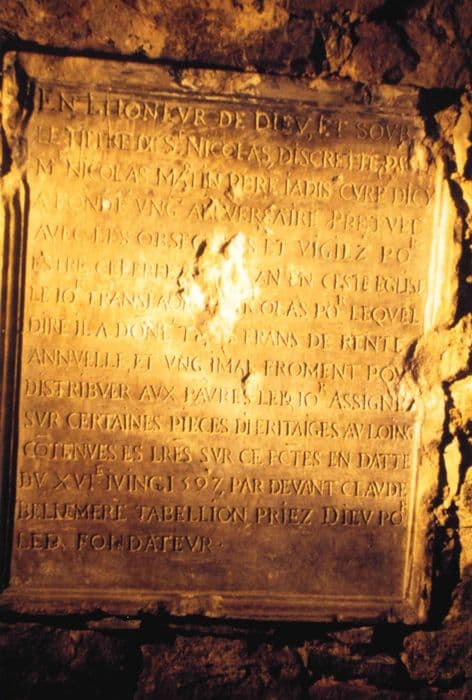 EN LHONEVR DE DIEV, ET SOVB
LE TITRE DE St NICOLAS, DISCRETTE
Mre NICOLAS PERE IADIS CVRE DICY
A FONDE VNG ANIVERSAIRE
AVEC LES ET VIGILZ POR
ESTRE CELEBRE AN EN CESTE EGLISE
LE IOR NICOLAS POR LEQVEL
DIRE IL A DONE FRANS DE RENTE
ANNVELLE, ET VNG IMAL FROMENT POVR
DISTRIBVER AVX PAVRES LED IOR ASSIGNEZ
SVR CERTAINES PIECES DHERITAIGES AV LONG
CŌTENVES ES LRES SVR CE FCTES EN DATTE
DV XVIE IVING 1597, PAR DEVANT CLAVDE
BELLEMERE TABELLION PRIEZ DIEV POR
LED FONDATEVR.